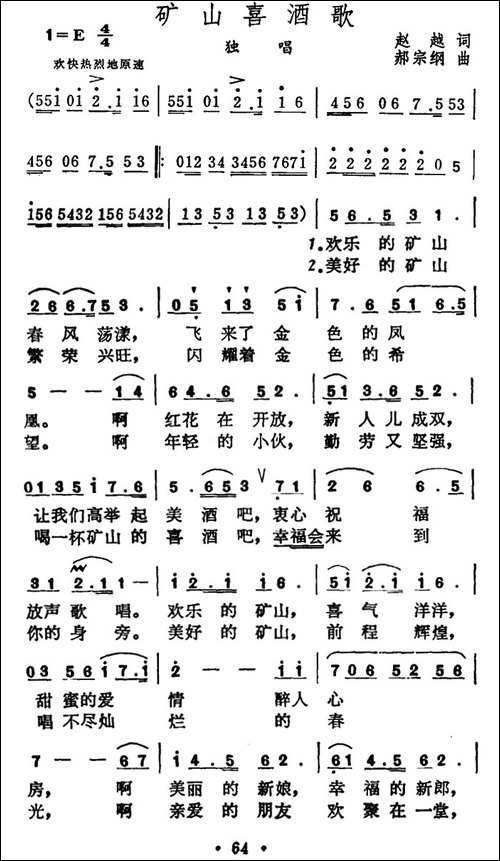 矿山喜酒歌
1=E 4/4 独唱 赵越 词
欢快热烈地原速 郝宗纲 曲
(551 01 2.1 16 | 551 01 2.1 16 | 456 06 7.5 53 |
456 06 7.5 53 |: 012 34 3456 7671 | 2 2 2 2 2 2 2 0 5 |
156 5432 156 5432 | 1 3 5 3 1 3 5 3) | 5 6 . 5 3 1 . |
1.欢乐 的 矿山
2.美好 的 矿山
2 6 6.7 5 3 . | 0 5 1 3 5 1 | 7 . 6 5 1 6.5 |
春 风 荡漾, 飞 来了 金 色 的 凤
繁 荣 兴旺, 闪 耀着 金 色 的 希
5 — — 1 4 | 6 4 . 6 5 2 . | 5 1 3 . 6 5 2 . |
凰。 啊 红花 在 开放, 新 人 儿 成双,
望。 啊 年轻 的 小伙, 勤 劳 又 坚强,
0 1 3 5 1 7 . 6 | 5 . 6 5 3 ∨ 7 1 | 2 6 6 . 5 |
让我们高举 起 美 酒 吧, 衷心 祝 福
喝一杯矿山 的 喜 酒 吧, 幸福会来 到
3 1 2 . 1 1 — | 1 2 . 1 1 6 . | 5 1 2 . 1 1 6 . |
放声 歌 唱。 欢乐 的 矿山, 喜 气 洋洋,
你的 身 旁。 美好 的 矿山, 前 程 辉煌,
0 3 5 6 1 7 . 1 | 2 — — 1 1 | 7 0 6 5 2 5 6 |
甜 蜜的爱 情 醉人 心
唱 不尽灿 烂 的 春
7 — — 6 7 | 1 4 . 5 6 2 . | 6 1 4 . 5 6 2 . |
房, 啊 美丽 的 新娘, 幸 福 的 新郎,
光, 啊 亲爱 的 朋友 欢 聚 在 一堂,
· 64 ·